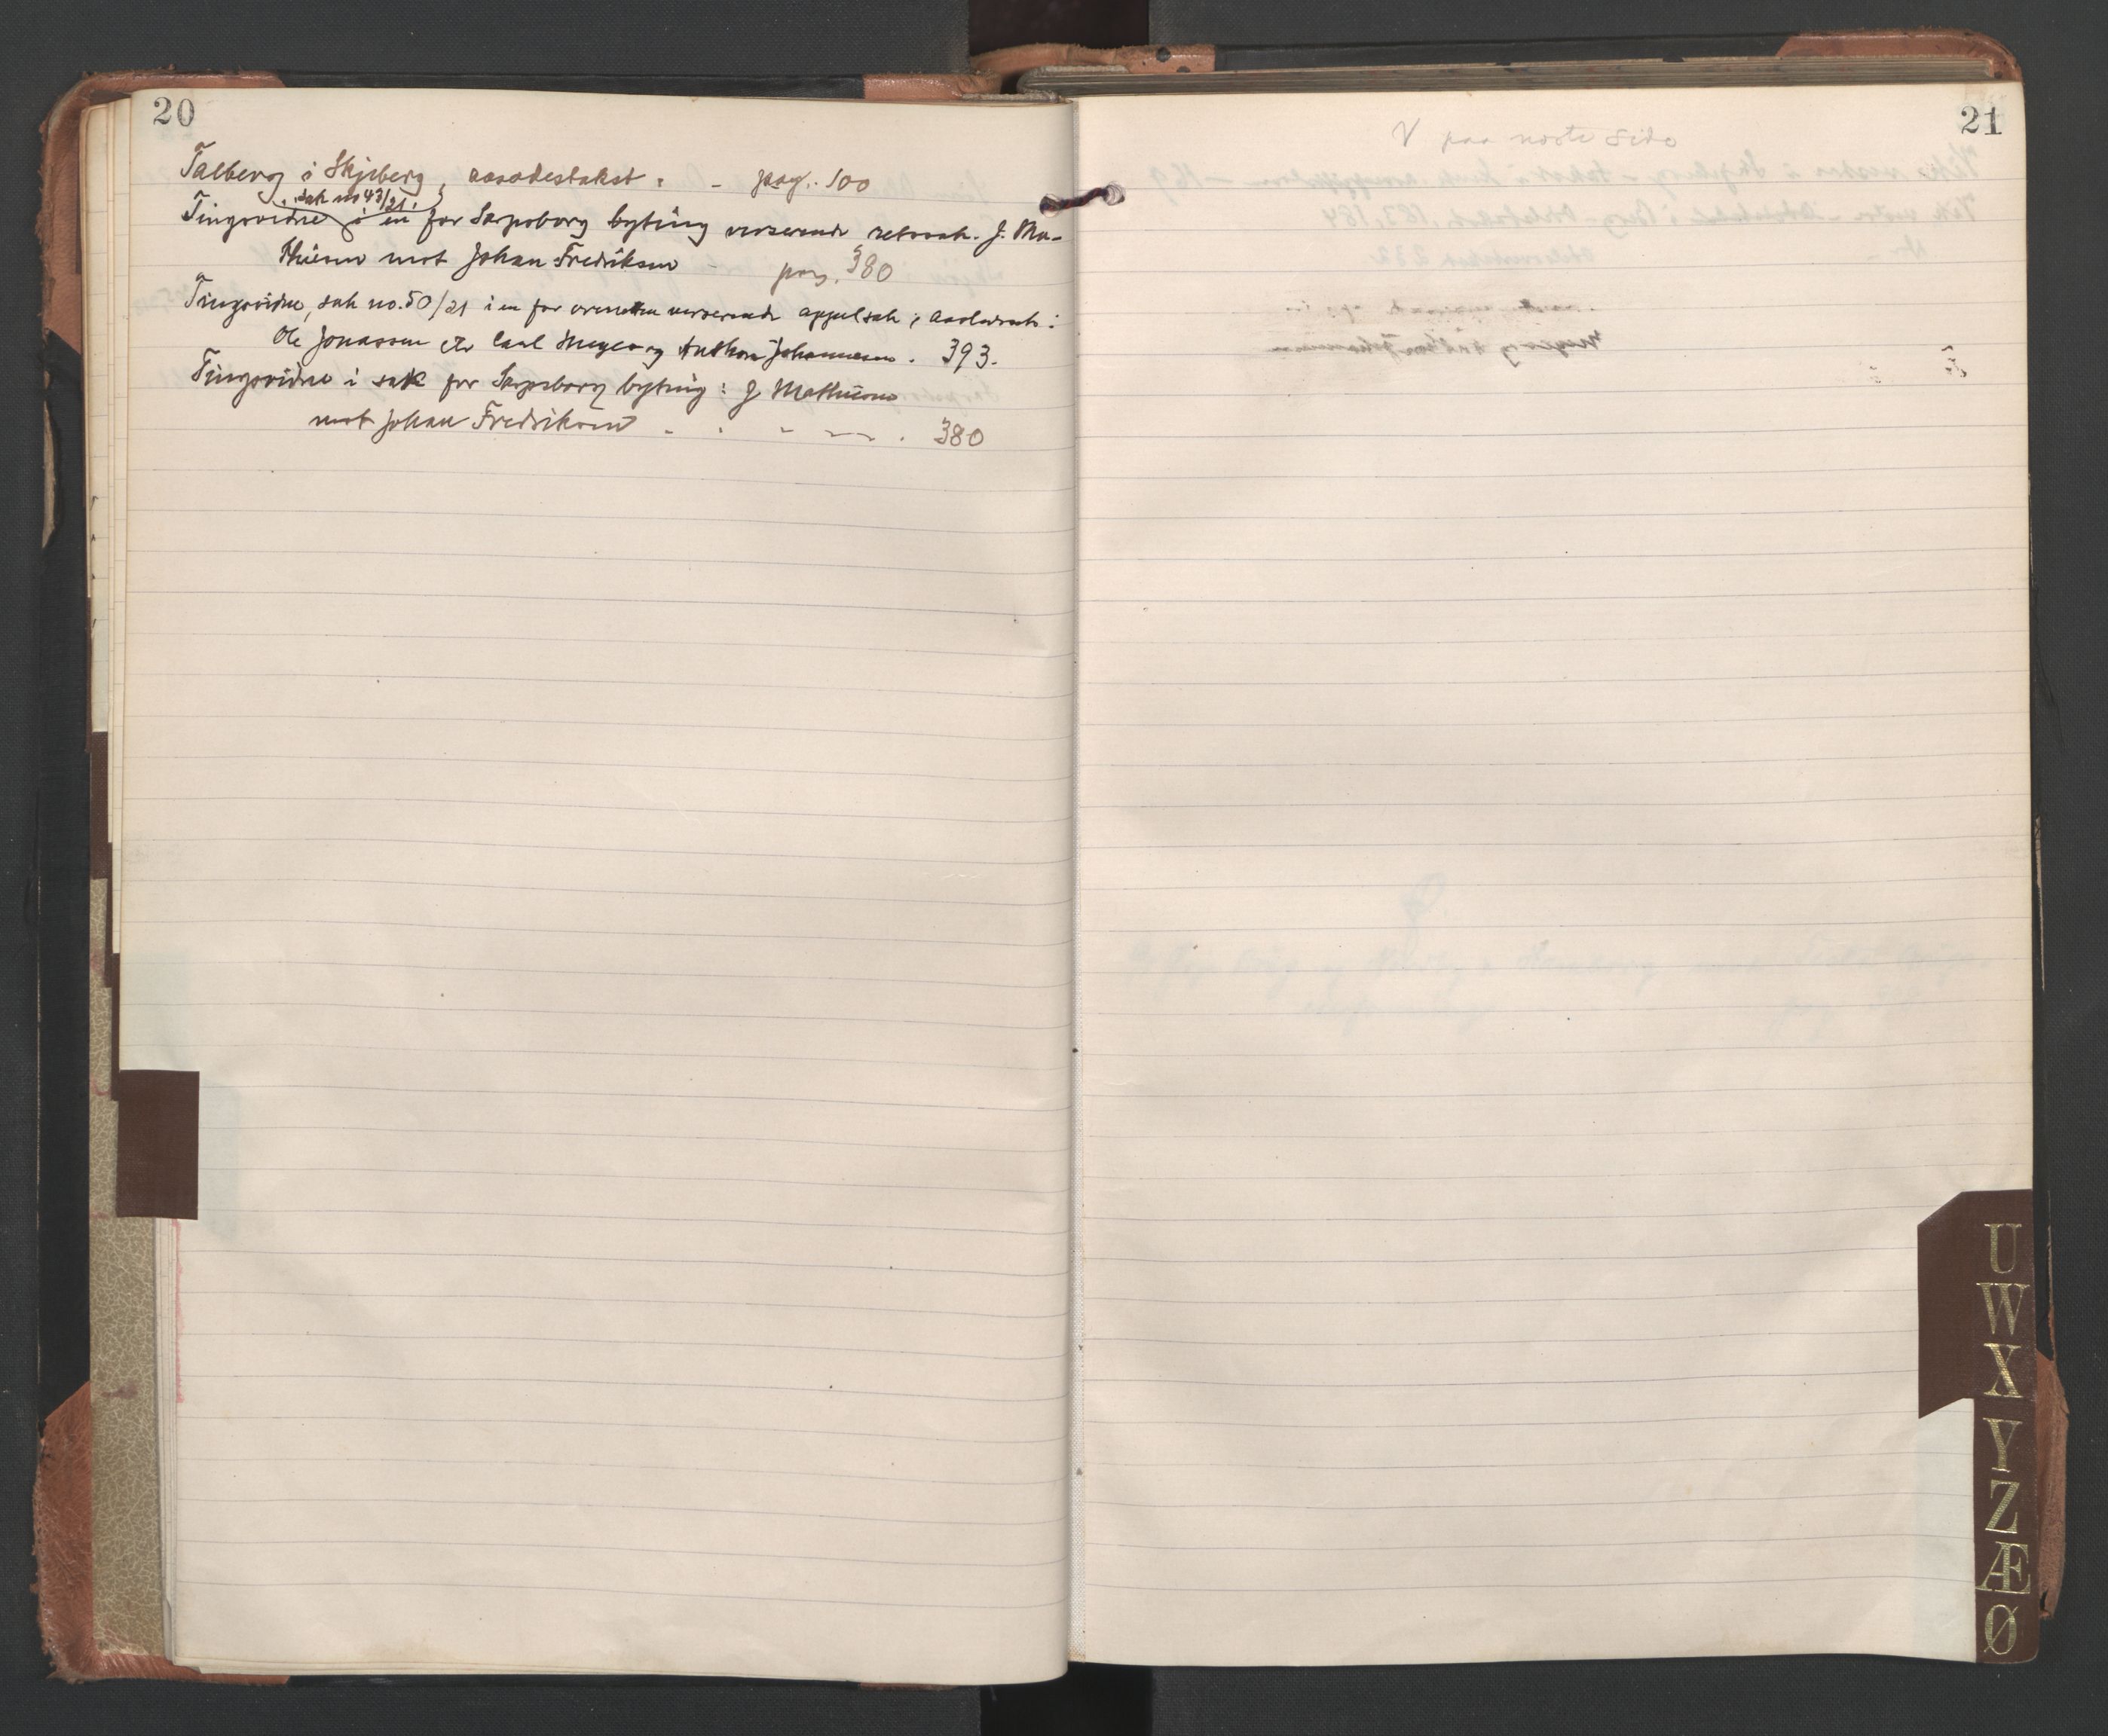 20
Talberg i Skjeberg, aasædestakst. - pag. 100
sak no 43/21.
Tingsvidne i en for Sarpsborg byting verserende retssak. J. Ma-
thiesen mot Johan Fredriksen - pag. 380
Tingsvidne, sak no. 50/21 i en for verserende appelsak,
Ole Jonassen Carl Meyer og Anthon Johannesen. 393.
Tingsvidne i sak for Sarpsborg byting: J Mathiesen
mot Johan Fredriksen - . - - . 380
21
V paa neste side
U
W
X
Y
Z
Æ
Ø